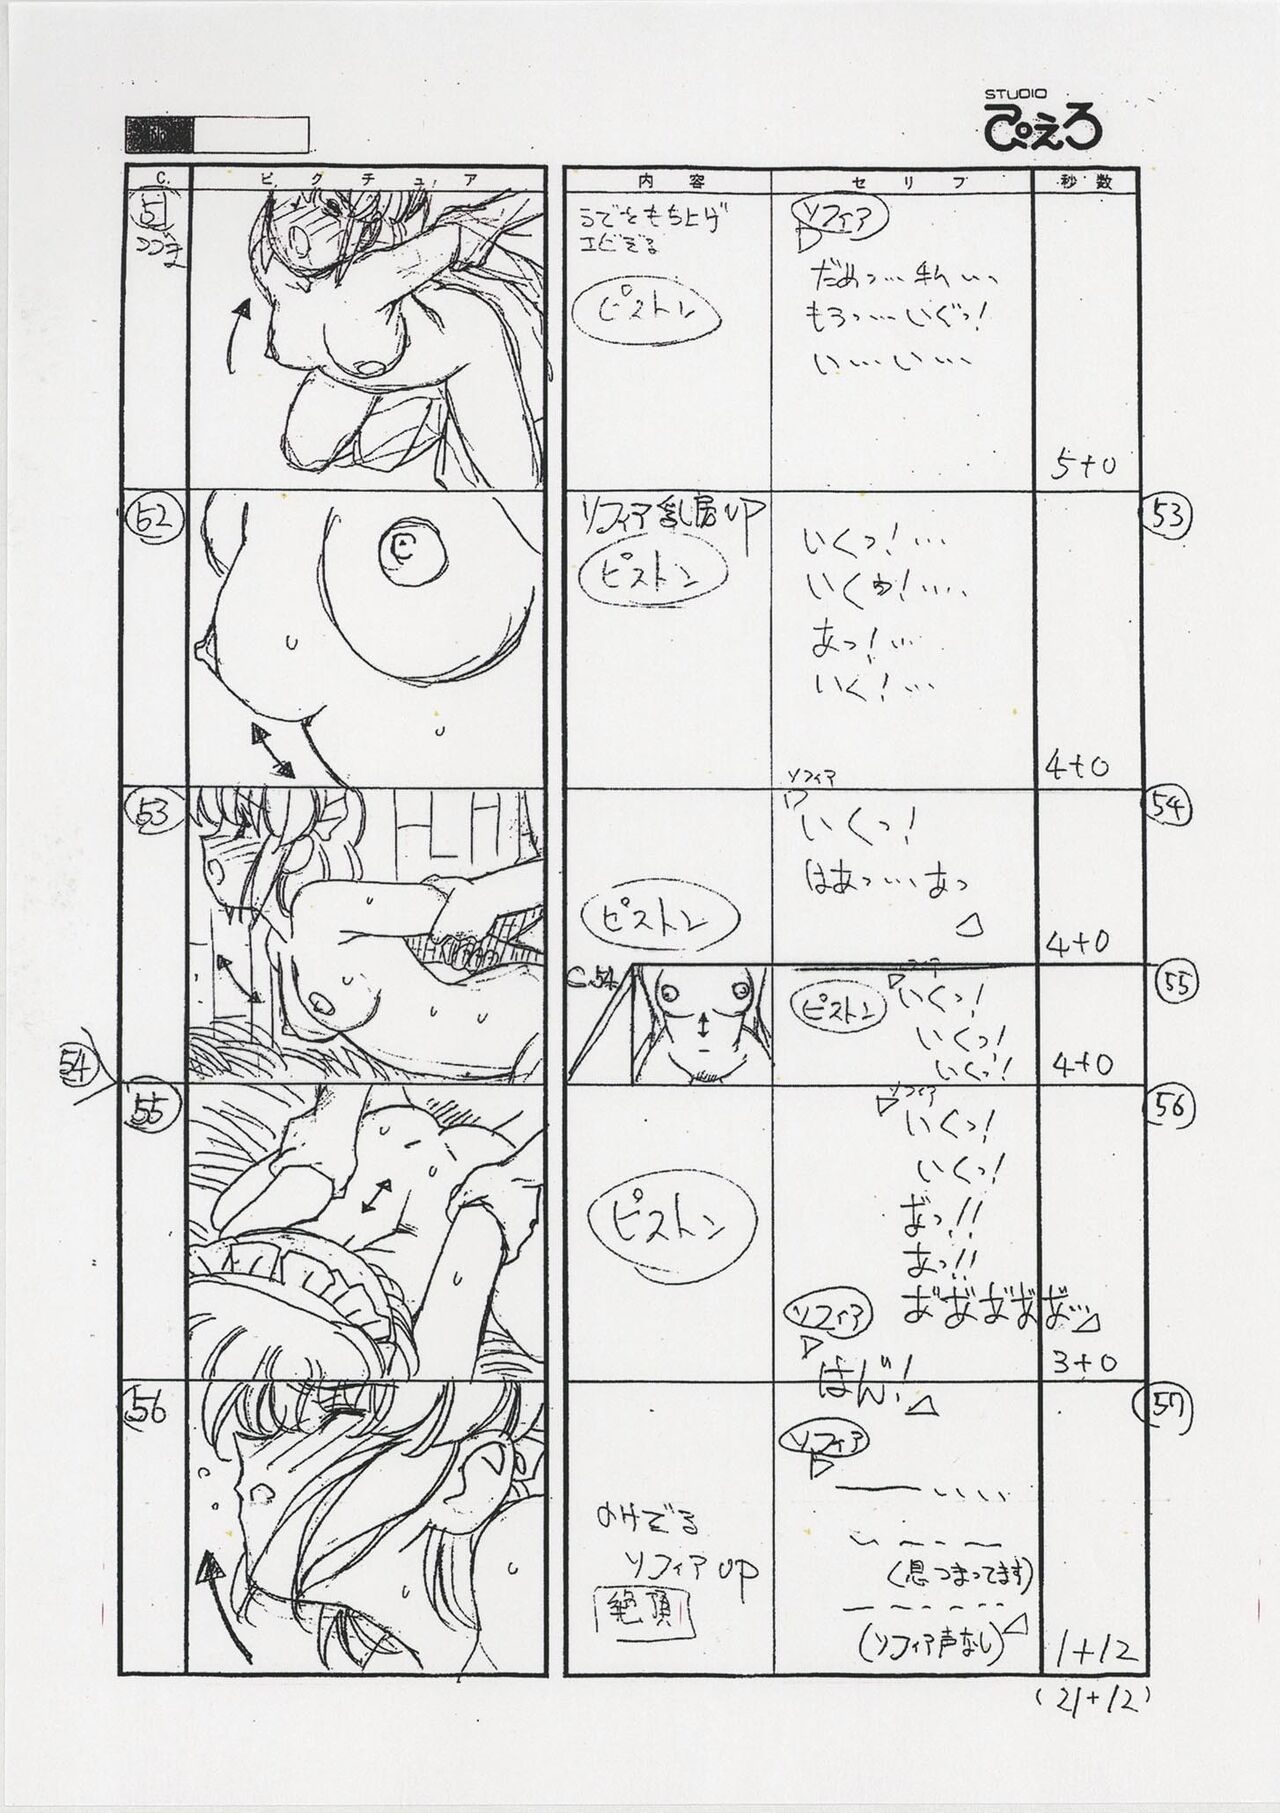 STUDIO
ぴえろ
C.
ピクチュア
内容
セリフ
秒数
51
つづき
うでをもち上げ
エビぞる
ピストン
ソフィア
だめっ…私ぃっ
もうっ…いぐっ!
い…い…
5+0
52
ソフィア乳房UP
ピストン
いくっ!…
いくぅ!…
あっ!…
いく!…
4+0
53
53
ピストン
ソフィア
いくっ!
はあっ…あっ
4+0
54
54
C.54
ピストン
ソフィア
いくっ!
いくっ!
いくっ!
4+0
55
55
ピストン
ソフィア
いくっ!
いくっ!
あ゛っ!!
あっ!!
あ゛あ゛あ゛あ゛あ゛…
ソフィア
はん゛!
3+0
56
56
のけぞる
ソフィアUP
絶頂
ソフィア
(息つまってます)
(ソフィア声なし)
1+12
57
(21+12)